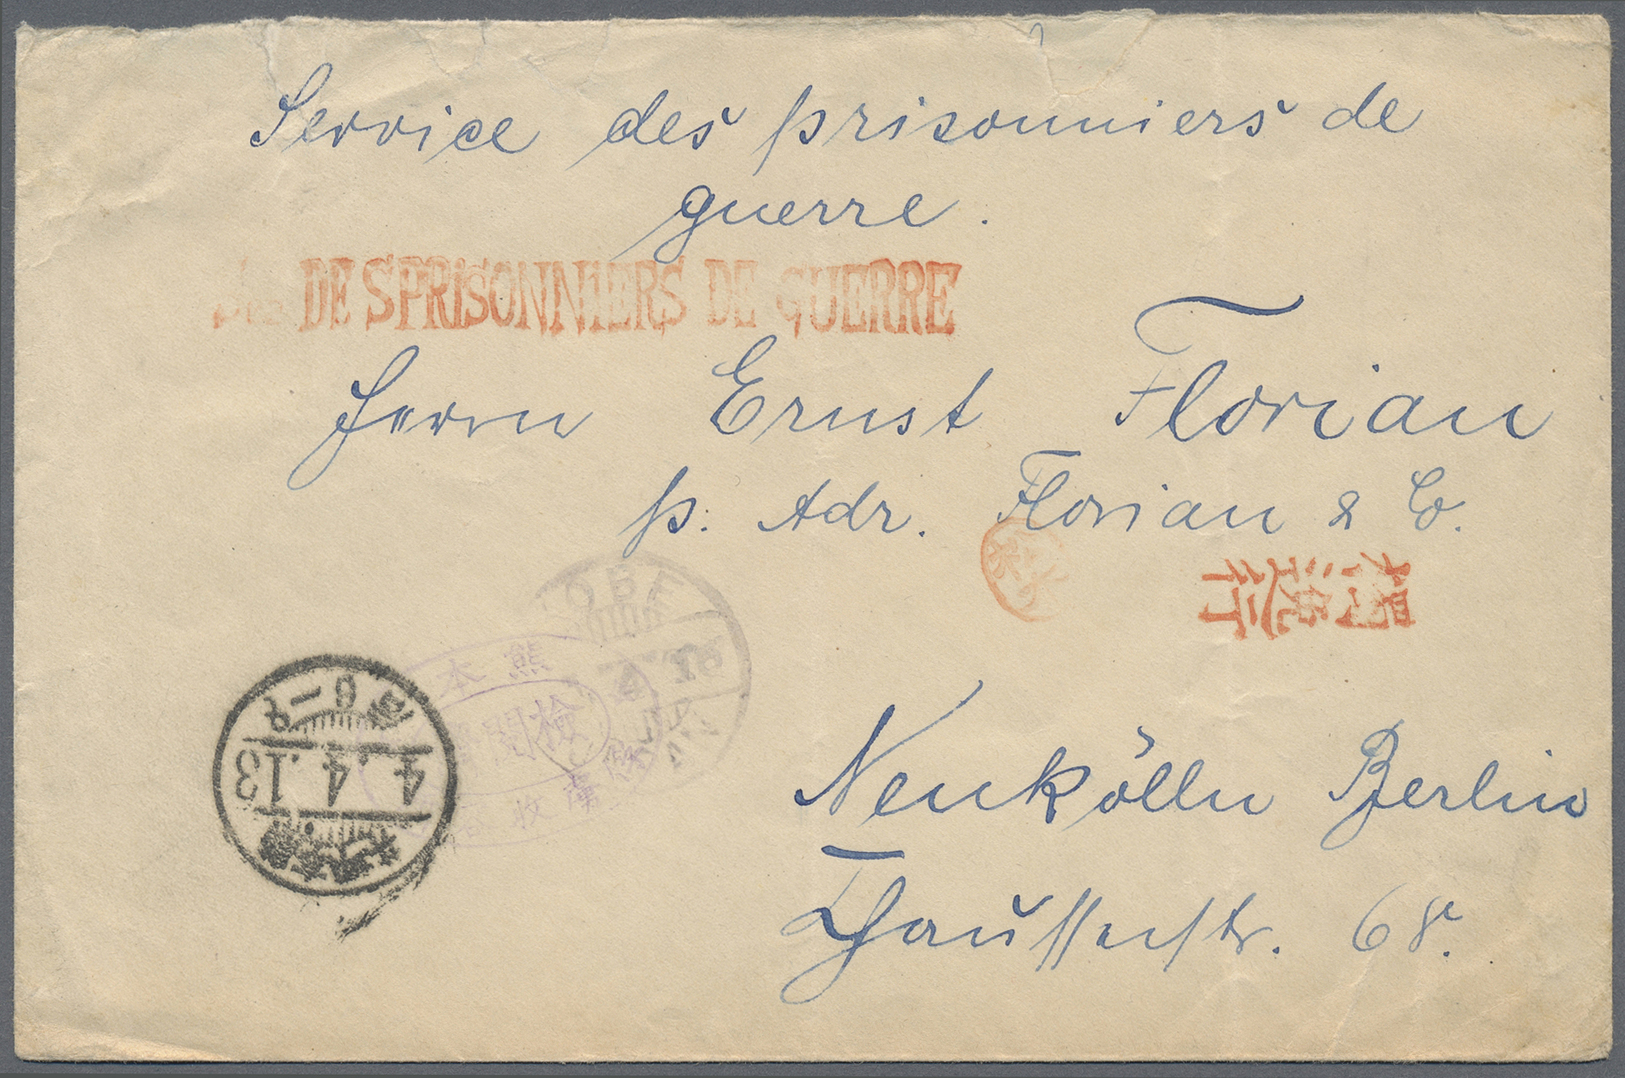 Service des prisonniers de
guerre.
DES PRISONNIERS DE GUERRE
Herrn Ernst Florian
p. Adr. Florian & Co.
KOBE
4 18
熊本
検閲
俘虜収
4.4.13
Neukölln Berlin
68.